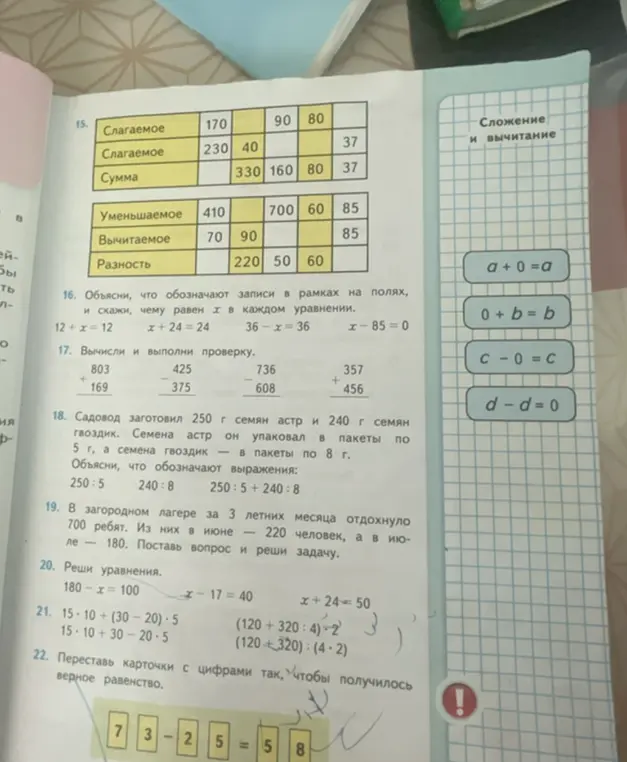 15.
Слагаемое 170 90 80
Слагаемое 230 40 37
Сумма 330 160 80 37
Уменьшаемое 410 700 60 85
Вычитаемое 70 90 85
Разность 220 50 60
16. Объясни, что обозначают записи в рамках на полях,
и скажи, чему равен x в каждом уравнении.
12 + x = 12 x + 24 = 24 36 − x = 36 x − 85 = 0
17. Вычисли и выполни проверку.
803 425 736 357
+ − − +
169 375 608 456
18. Садовод заготовил 250 г семян астр и 240 г семян
гвоздик. Семена астр он упаковал в пакеты по
5 г, а семена гвоздик — в пакеты по 8 г.
Объясни, что обозначают выражения:
250 : 5 240 : 8 250 : 5 + 240 : 8
19. В загородном лагере за 3 летних месяца отдохнуло
700 ребят. Из них в июне — 220 человек, а в ию-
ле — 180. Поставь вопрос и реши задачу.
20. Реши уравнения.
180 − x = 100 x − 17 = 40 x + 24 = 50
21. 15 · 10 + (30 − 20) · 5 (120 + 320 : 4) · 2
15 · 10 + 30 − 20 · 5 (120 + 320) : (4 · 2)
22. Переставь карточки с цифрами так, чтобы получилось
верное равенство.
7 3 − 2 5 = 5 8
Сложение
и вычитание
a + 0 = a
0 + b = b
c − 0 = c
d − d = 0
!